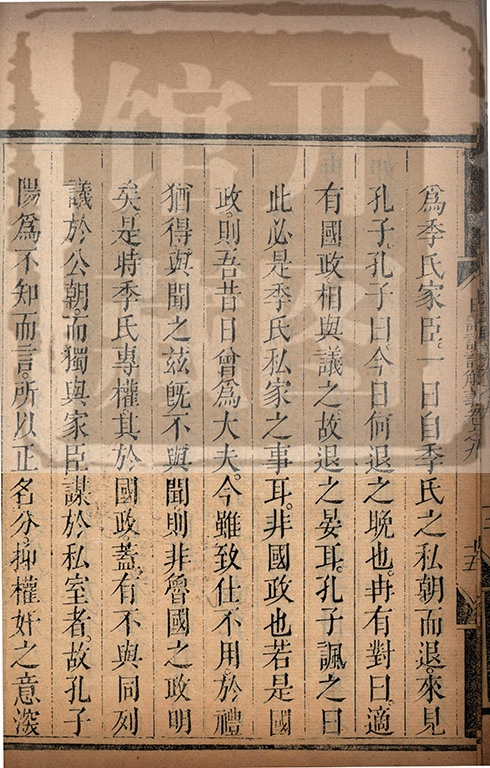 爲季氏家臣。一日自季氏之私朝而退。來見
孔子。孔子曰。今日何退之晚也。冉有對曰。適
有國政相與議之。故退之晏耳。孔子諷之曰
此必是季氏私家之事耳。非國政也若是國
政。則吾昔日曾爲大夫。今雖致仕不用於禮
猶得與聞之玆旣不與聞。則非魯國之政明
矣。是時季氏專權。其於國政。蓋有不與同列
議於公朝。而獨與家臣謀於私室者。故孔子
陽爲不知而言。所以正名分。抑權奸之意深